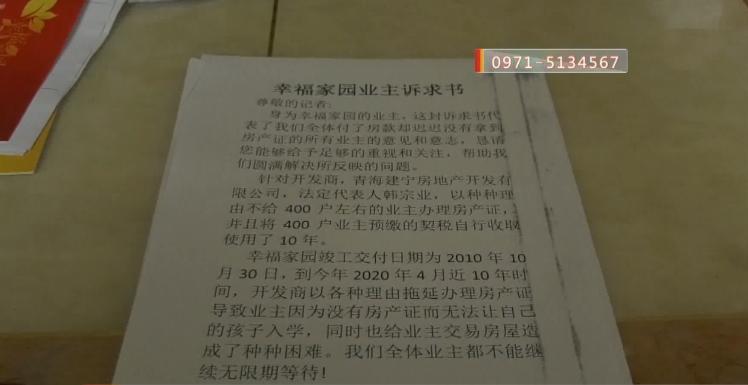 0971-5134567
幸福家园业主诉求书
尊敬的记者:
身为幸福家园的业主，这封诉求书代
表了我们全体付了房款却迟迟没有拿到
房产证的所有业主的意见和意志，恳请
您能够给予足够的重视和关注，帮助我
们圆满解决所反映的问题。
针对开发商，青海建宁房地产开发有
限公司，法定代表人韩宗业，以种种理
由不给 400 户左右的业主办理房产证，
并且将 400 户业主预缴的契税自行收取
使用了 10 年。
幸福家园竣工交付日期为 2010 年 10
月 30 日，到今年 2020 年 4 月近 10 年时
间，开发商以各种理由拖延办理房产证
导致业主因为没有房产证而无法让自己
的孩子入学，同时也给业主交易房屋造
成了种种困难。我们全体业主都不能继
续无限期等待!